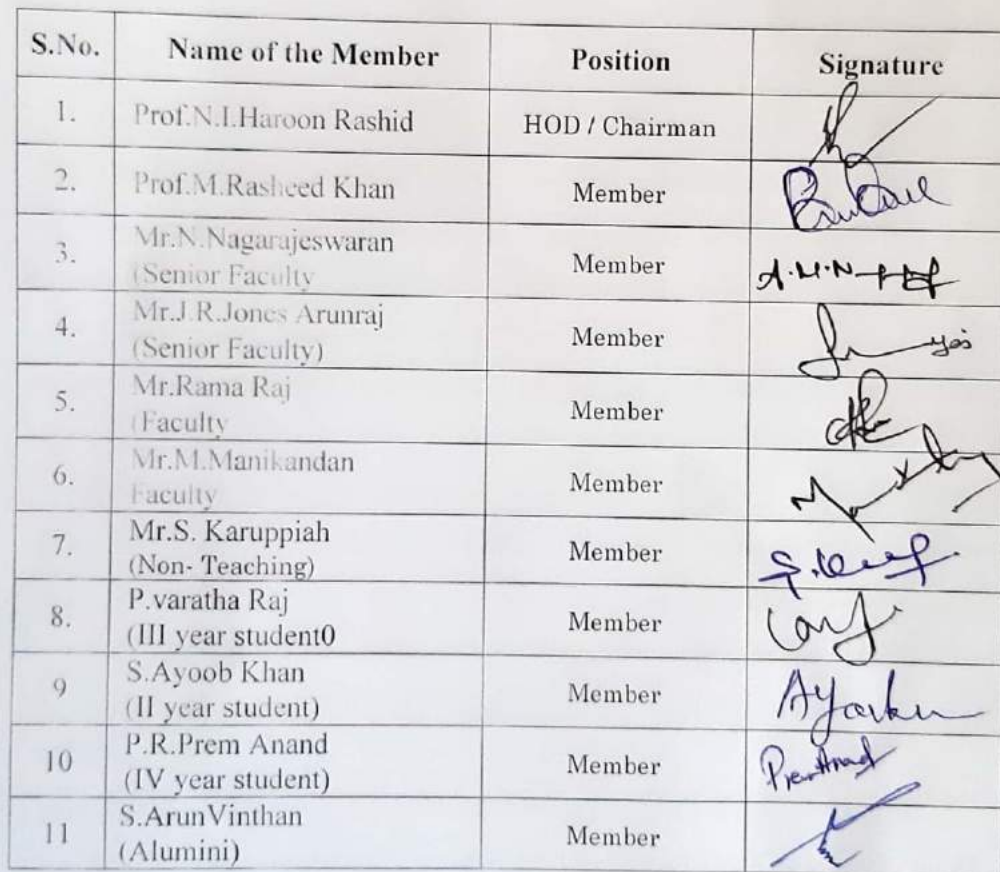 S.No. Name of the Member Position Signature
1. Prof.N.I.Haroon Rashid HOD / Chairman
2. Prof.M.Rasheed Khan Member
3. Mr.N.Nagarajeswaran
(Senior Faculty Member A.M.N
4. Mr.J.R.Jones Arunraj
(Senior Faculty) Member
5. Mr.Rama Raj
(Faculty Member
6. Mr.M.Manikandan
Faculty Member
7. Mr.S. Karuppiah
(Non- Teaching) Member
8. P.varatha Raj
(III year student0 Member
9 S.Ayoob Khan
(II year student) Member
10 P.R.Prem Anand
(IV year student) Member
11 S.ArunVinthan
(Alumini) Member